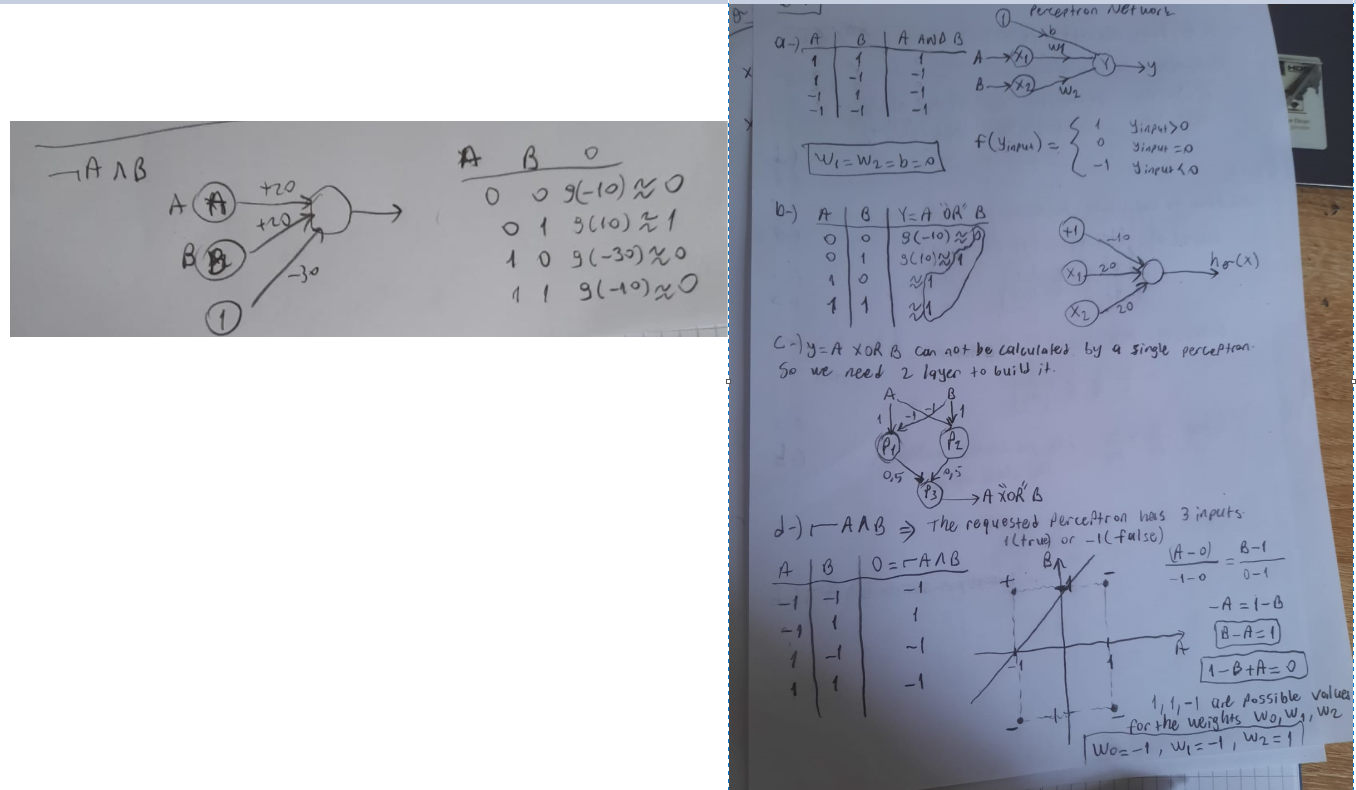 ¬A ∧ B
A A +20
B B +20
1 -30
A B 0
0 0 g(-10) ≈ 0
0 1 g(10) ≈ 1
1 0 g(-30) ≈ 0
1 1 g(-10) ≈ 0
Perceptron Network
a-) A B A AND B
1 1 1
1 -1 -1
-1 1 -1
-1 -1 -1
1 b
A x1 w1 Y y
B x2 w2
W1 = W2 = b = 0
f(yinput) = { 1 yinput>0
0 yinput=0
-1 yinput<0
b-) A B Y=A "OR" B
0 0 g(-10) ≈ 0
0 1 g(10) ≈ 1
1 0 ≈ 1
1 1 ≈ 1
+1 -10
x1 20 hσ(x)
x2 20
c-) y=A XOR B can not be calculated by a single perceptron.
So we need 2 layer to build it.
A B
1 -1 -1 1
P1 P2
0,5 0,5
P3 → A "XOR" B
d-) ⌐A∧B ⇒ The requested perceptron has 3 inputs
1(true) or -1(false)
A B 0=⌐A∧B
-1 -1 -1
-1 1 1
1 -1 -1
1 1 -1
B
+ 1 -
-1 1 A
- -1 -
(A-0)/-1-0 = B-1/0-1
-A = 1-B
B-A=1
1-B+A=0
1, 1, -1 are possible values
for the weights W0, W1, W2
W0=-1, W1=-1, W2=1